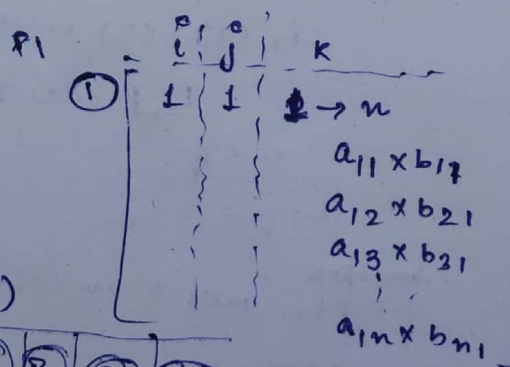 P1
i j K
① 1 1 1 → n
a11 x b11
a12 x b21
a13 x b31
a1n x bn1